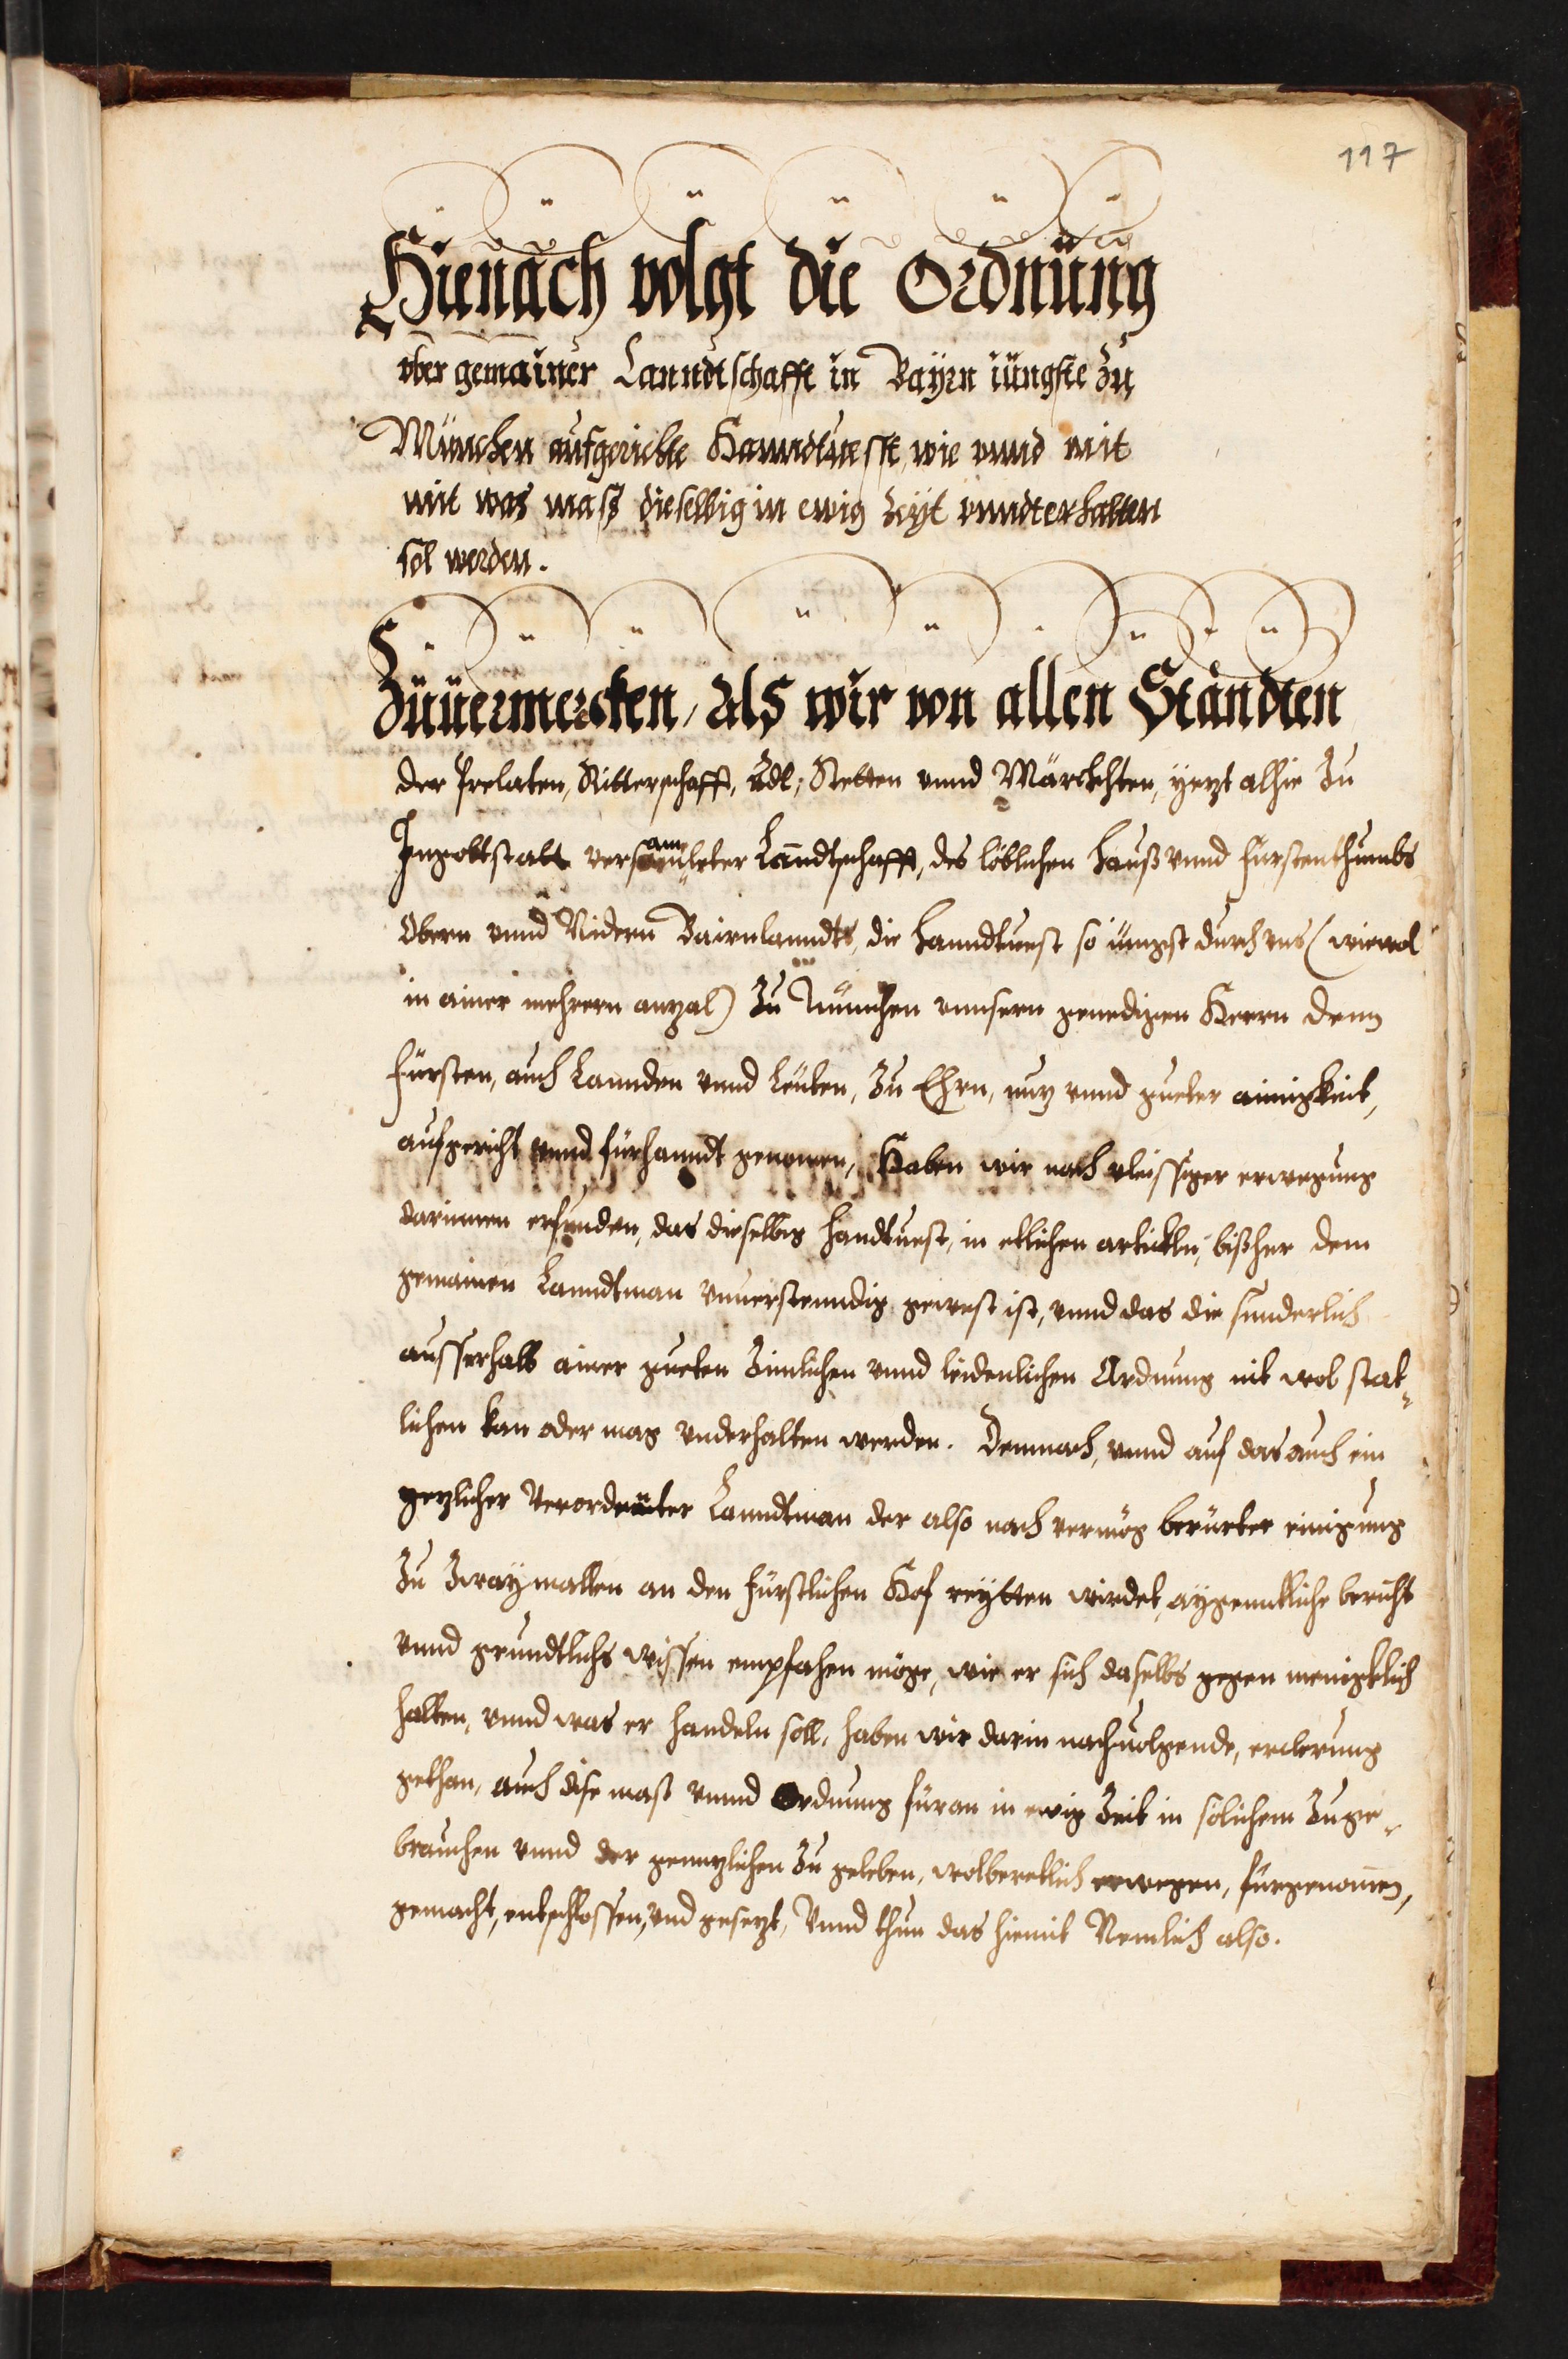 117
Hienach volgt die Ordnüng
vber gemainer Lanndtschafft in Bayrn iüngste zu
München aufgerichte Hanndtuesst, wie vnnd mit
mit was mass dieselbig in ewig zeyt vnndterhalten
sol werden.
Züuermercken, Als wir von allen Ständten
der Prelaten, Ritterschafft, Adl, Stetten vnnd Märckhten, yezt alhie zu
Ingoltstatt versamleter Lanndtschafft, des löblichen hauß vnnd Fürstenthumbs
Obern vnnd Nidern Bairnlanndts, die hanndtuest so iüngst durch vns (wiewol
in ainer mehrern anzal) zu München vnnsern genedigen Herrn denn
Fürsten, auch Lannden vnnd Leuten, zu Ehrn, nuz vnnd gueter ainigkeit,
aufgericht vnnd fürhanndt genomen, Haben wir nach vleissiger erwegung
darinnen erfunden, das dieselbig handtuest, in etlichen artickln, bißher dem
gemainen Lanndtman vnuerstenndig gewest ist, vnnd das die sunderlich
ausserhalb ainer gueten zimlichen vnnd leidenlichen Ordnung nit wol stat-
lichen kan oder mag vnderhalten werden. Demnach, vnnd auf das auch ein
yezlicher Verordneter Lanndtman der also nach vermög berürter einigung
zu zwaymallen an den fürstlichen Hof reytten wirdet, aygenntliche bericht
vnnd grundtlichs wissen empfahen möge, wie er sich daselbs gegen menigklich
halten, vnnd was er handeln soll, haben wir darin nachuolgende, erclerung
gethan, auch dise maß vnnd Ordnung füran in ewig zeit in solichem zuge-
brauchen vnnd der genntzlichen zu geleben, wolberetlich erwegen, fürgenomen,
gemacht, entschlossen, vnd gesezt, Vnnd thun das hiemit Nemlich also.